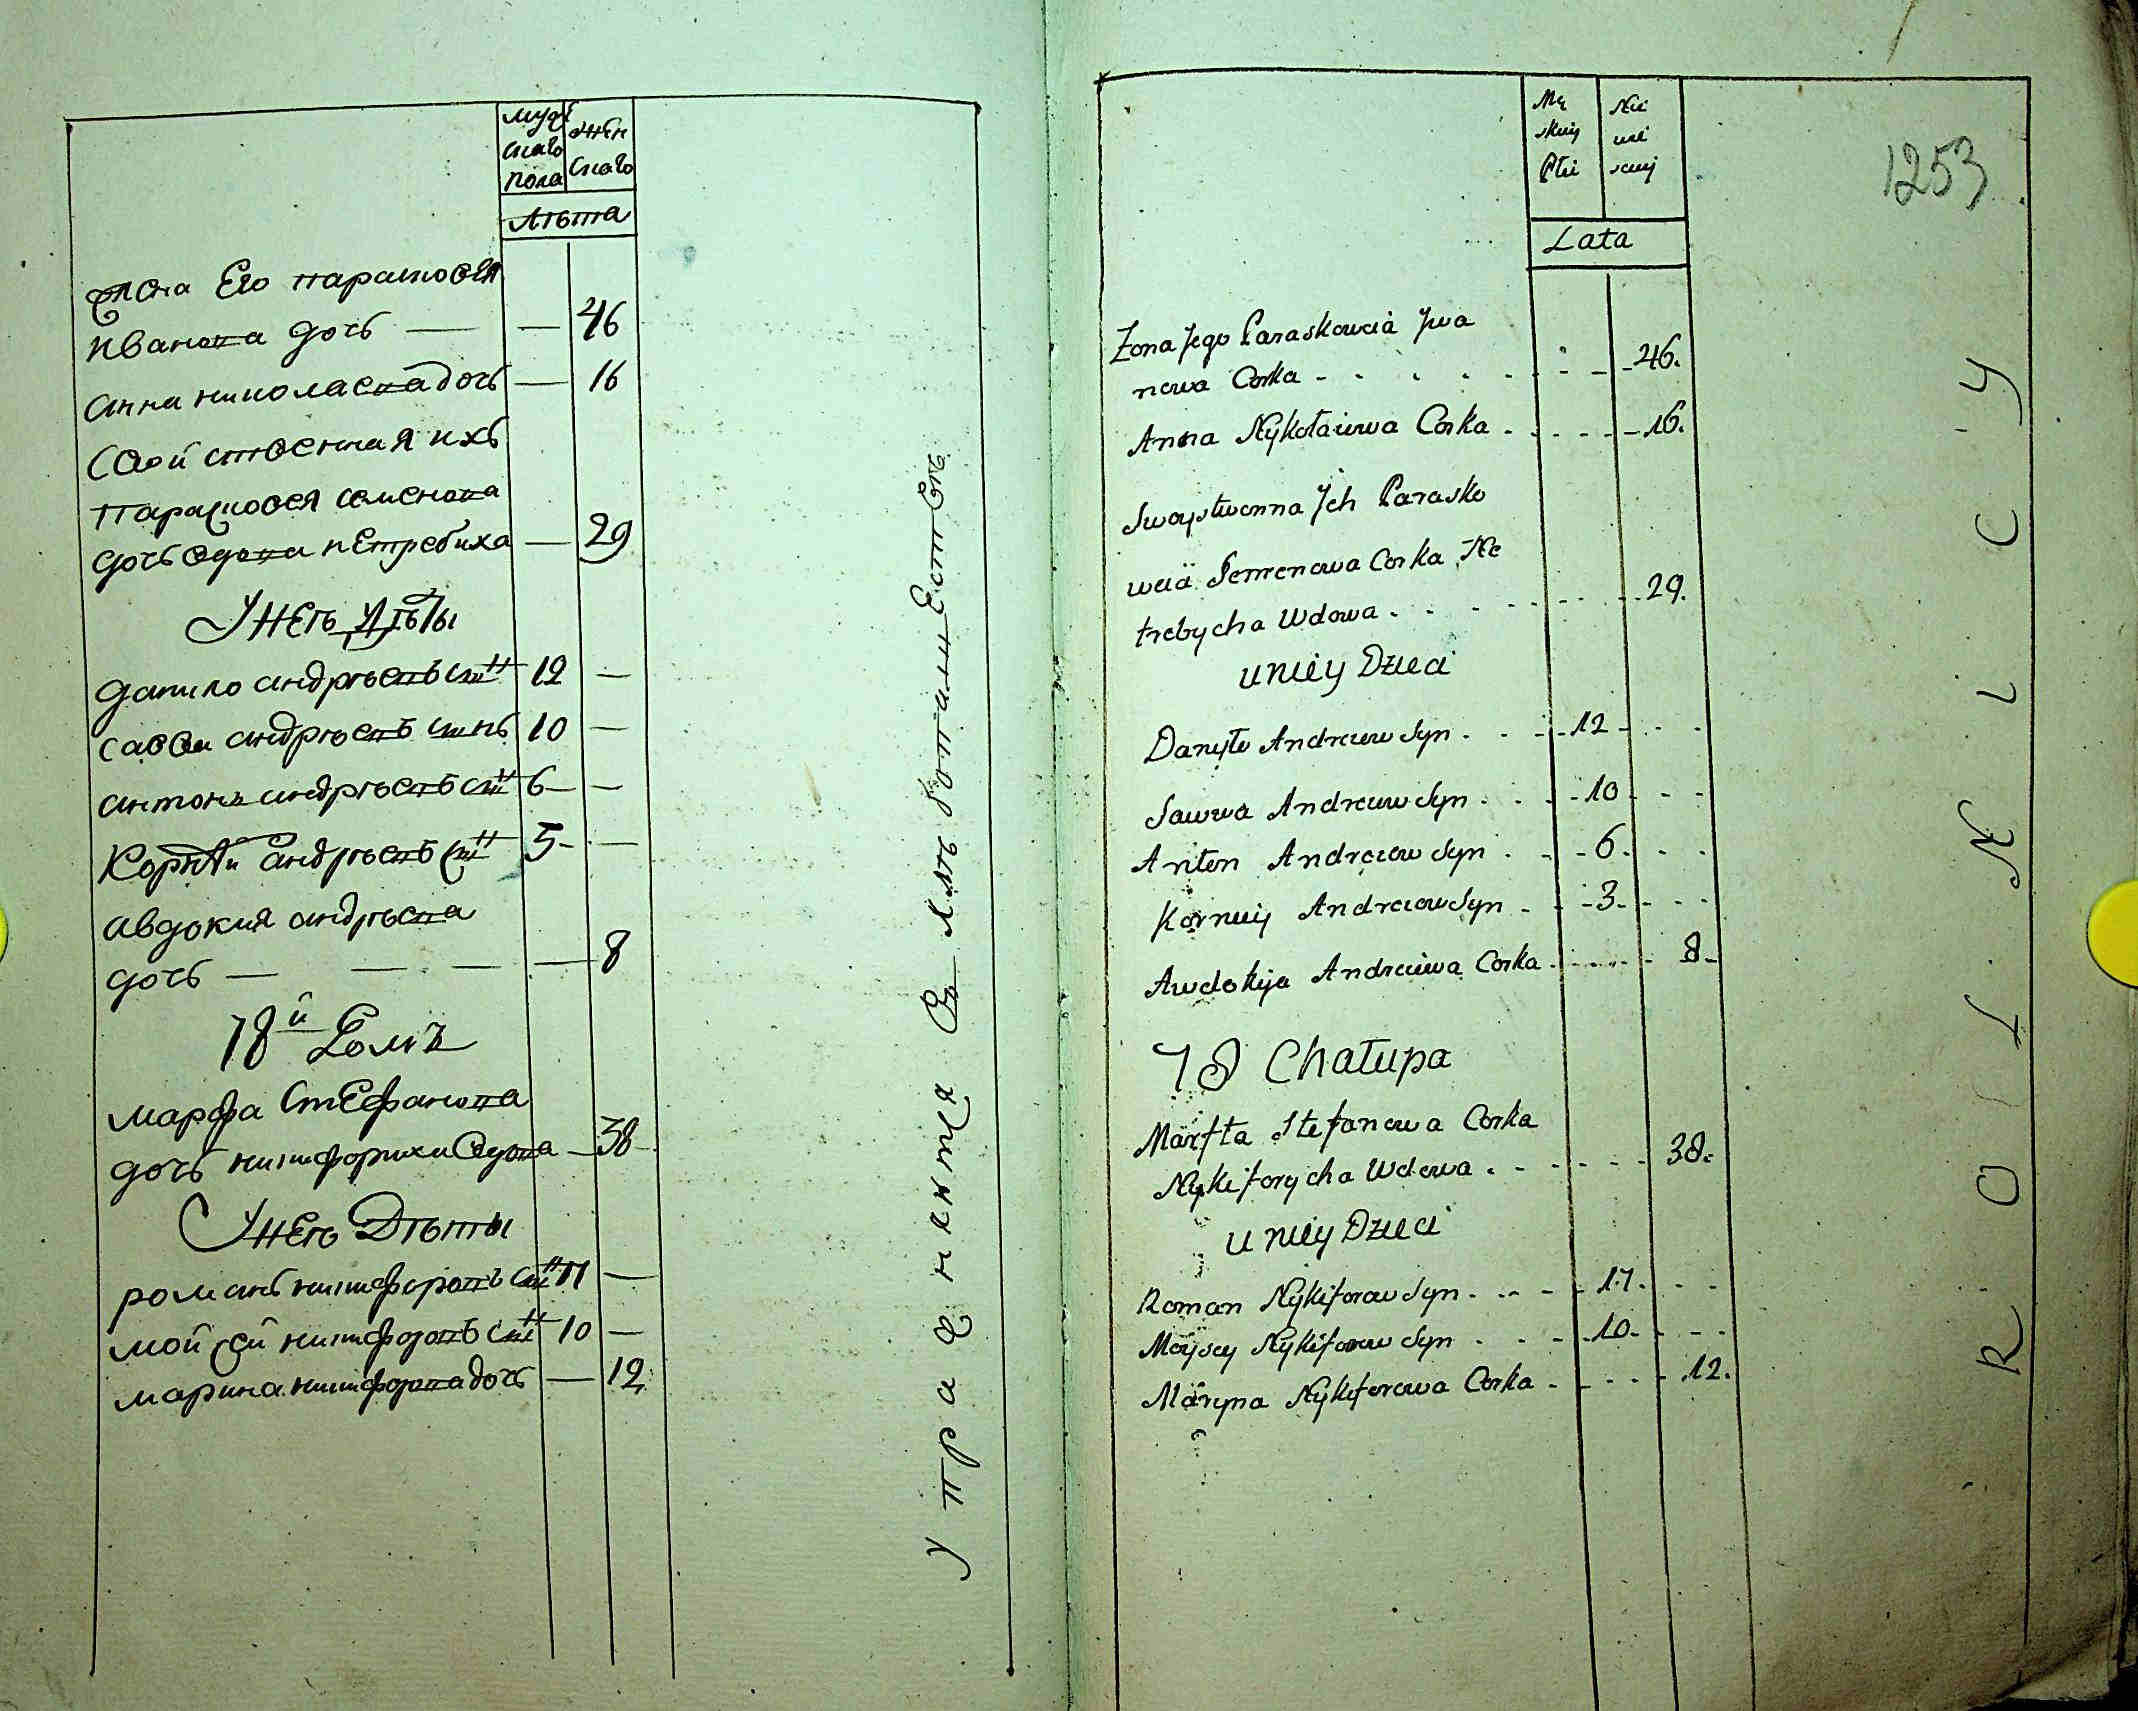 мужескаго пола
женскаго
Лѣта
жена Его параскова
Иванова дочь — — 46
Анна николаева дочь — 16
Свойственная ихъ
Параскова семенова
дочь вдова нетребиха — 29
У неѣ дѣты
данило андрѣевъ сынъ 12 —
савва андрѣевъ сынъ 10 —
антонъ андрѣевъ сынъ 6 —
Корнѣй андрѣевъ сынъ 5 —
авдокия андрѣева
дочь — — — — 8
78й Домъ
марфа Стефанова
дочь никифориха вдова — 38
У неѣ Дѣты
романъ никифоровъ сынъ 17 —
мойсей никифоровъ сынъ 10 —
марина никифорова дочь — 12
управняются въ хлѣбопашестве
1253
Męskiej Płci
Niewieściej
Lata
Zona Jego Paraskowia Jwa
nowa Corka - - - 46.
Anna Nykołaiewa Corka - - - 16.
Swoystwenna Jch Parasko
weia Semenowa Corka Ne
trebycha Wdowa - - - 29.
u niey Dzieci
Danyło Andreiew Syn - - 12 - - -
Sawwa Andreiew Syn - - 10 - - -
Anton Andreiew Syn - - 6 - - -
Korniey Andreiow Syn - - 3 - - -
Awdokija Andreiewa Corka - - - 8
78 Chałupa
Marfta Stefanowa Corka
Nykiforycha Wdowa - - - 38.
u niey Dzieci
Roman Nykiforow Syn - - 17 - - -
Moysey Nykiforow Syn - - 10 - - -
Maryna Nykiforowa Corka - - - 12.
ROLNICY